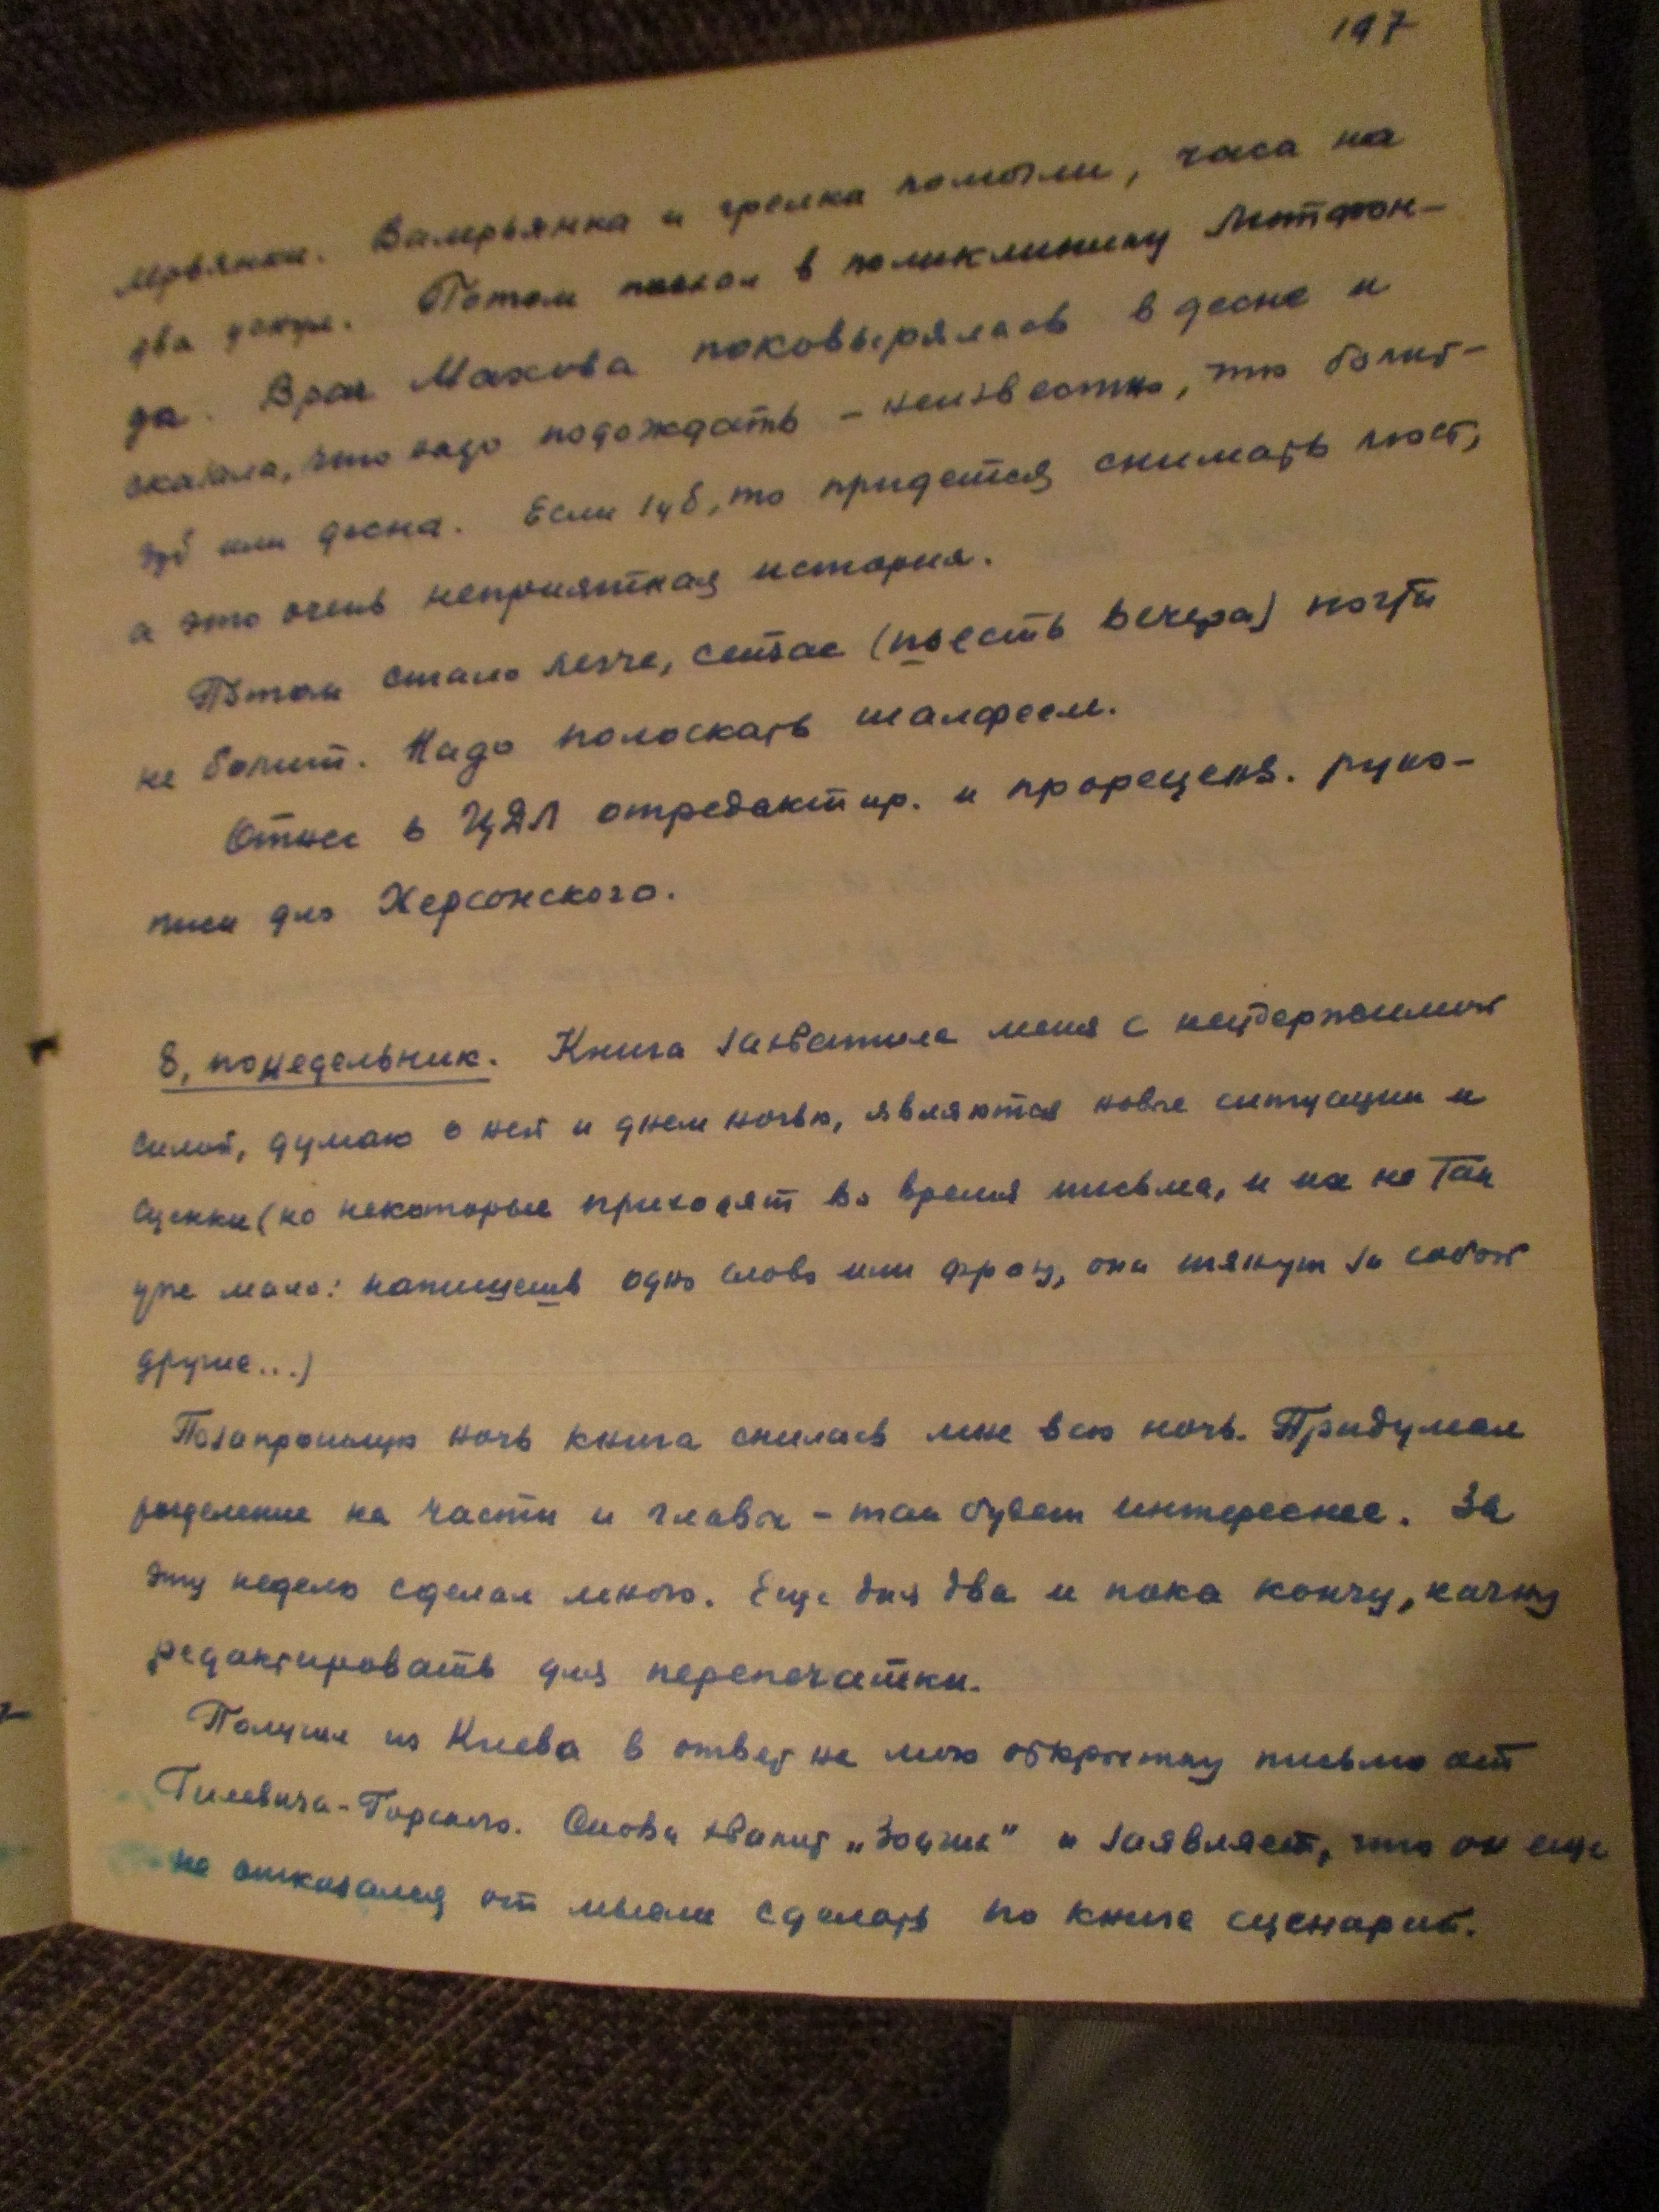 197
лерьянки. Валерьянка и грелка помогли, часа на
два уснул. Потом поехал в поликлинику Литфон-
да. Врач Махова поковырялась в десне и
сказала, что надо подождать – неизвестно, что болит –
зуб или десна. Если зуб, то придется снимать мост,
а это очень неприятная история.
Потом стало легче, сейчас (шесть вечера) почти
не болит. Надо полоскать шалфеем.
Отнес в ЦДЛ отредактир. и прореценз. руко-
писи для Херсонского.
8, понедельник. Книга захватила меня с неудержимой
силой, думаю о ней и днем ночью, являются новые ситуации и
сценки (но некоторые приходят во время письма, и их не так
уже мало: напишешь одно слово или фразу, они тянут за собой
другие...)
Позапрошлую ночь книга снилась мне всю ночь. Придумал
разделение на части и главы – так будет интереснее. За
эту неделю сделал много. Еще дня два и пока кончу, начну
редактировать для перепечатки.
Получил из Киева в ответ на мою открытку письмо от
Гилевича-Горского. Снова хвалит „Зодчие" и заявляет, что он еще
не отказался от мысли сделать по книге сценарий.